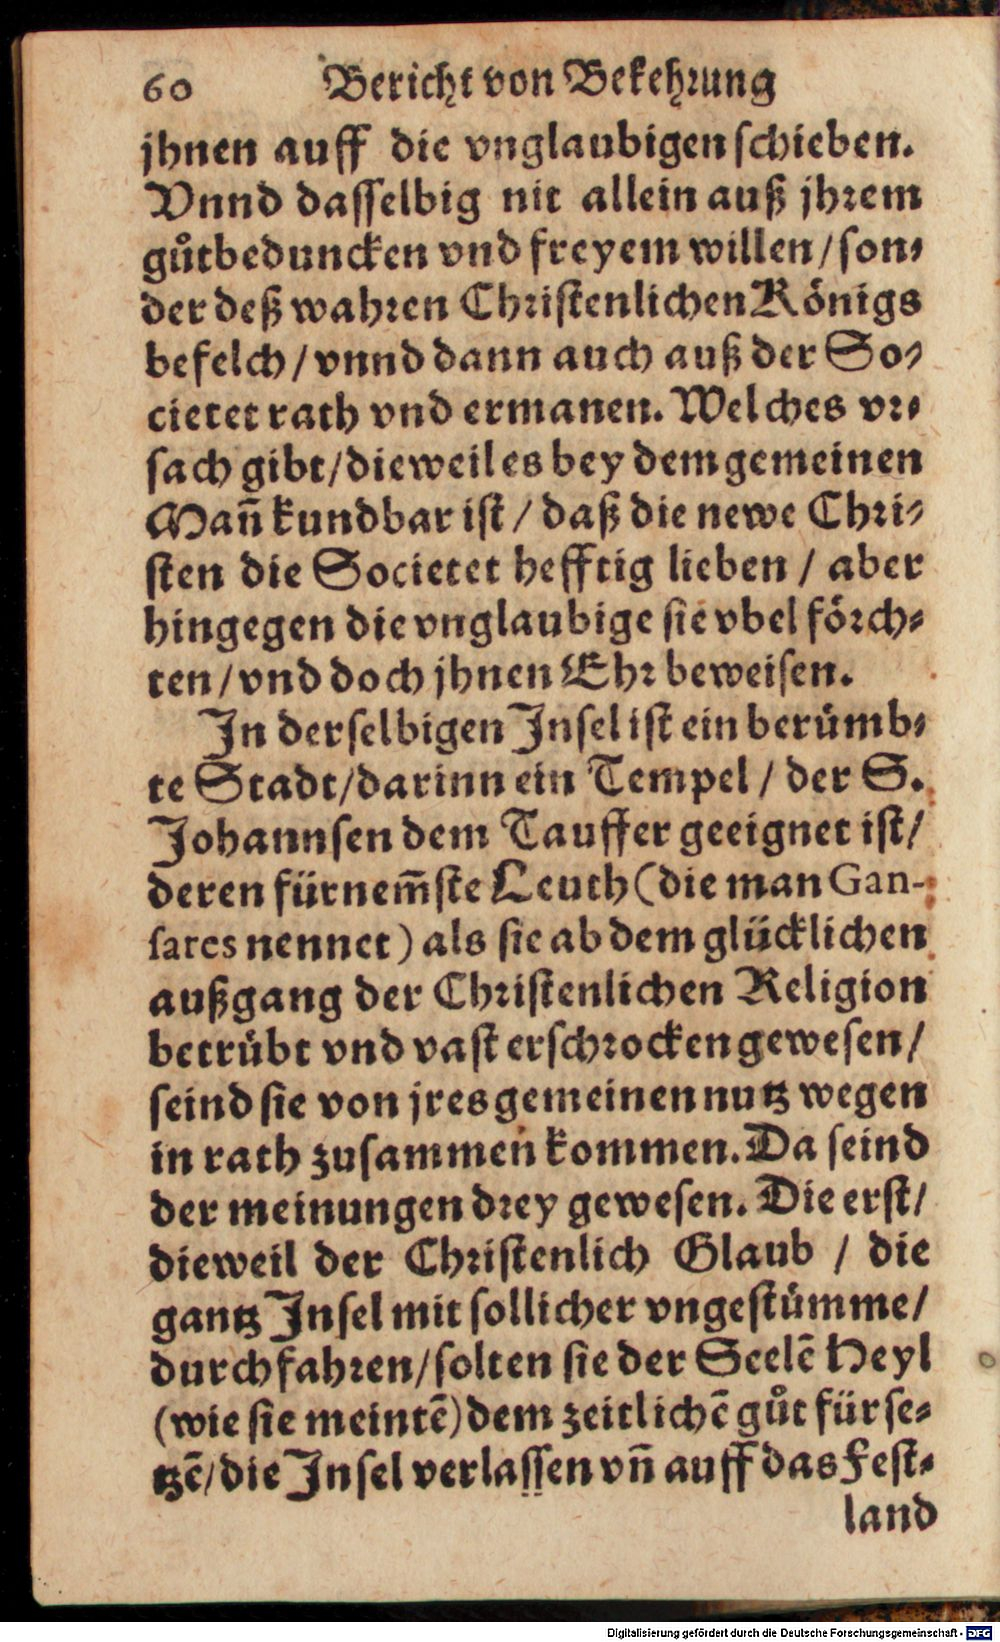 60 Bericht von Bekehrung
jhnen auff die vnglaubigen schieben.
Vnnd dasselbig nit allein auß jhrem
gůtbeduncken vnd freyem willen / son⸗
der deß wahren Christenlichen Königs
befelch / vnnd dann auch auß der So⸗
cietet rath vnd ermanen. Welches vr⸗
sach gibt / dieweil es bey dem gemeinen
Mañ kundbar ist / daß die newe Chri⸗
sten die Societet hefftig lieben / aber
hingegen die vnglaubige sie vbel förch⸗
ten / vnd doch jhnen Ehr beweisen.
In derselbigen Insel ist ein berümb⸗
te Stadt / darinn ein Tempel / der S.
Johannsen dem Tauffer geeignet ist /
deren fürnem̃ste Leuth (die man Gan-
sares nennet) als sie ab dem glücklichen
außgang der Christenlichen Religion
betrübt vnd vast erschrocken gewesen /
seind sie von jres gemeinen nutz wegen
in rath zusammen kommen. Da seind
der meinungen drey gewesen. Die erst /
dieweil der Christenlich Glaub / die
gantz Insel mit sollicher vngestümme /
durchfahren / solten sie der Seelẽ Heyl
(wie sie meintẽ) dem zeitlichẽ gůt fürse⸗
tzẽ / die Insel verlassen vñ auff das Fest⸗
land
Digitalisierung gefördert durch die Deutsche Forschungsgemeinschaft - DFG